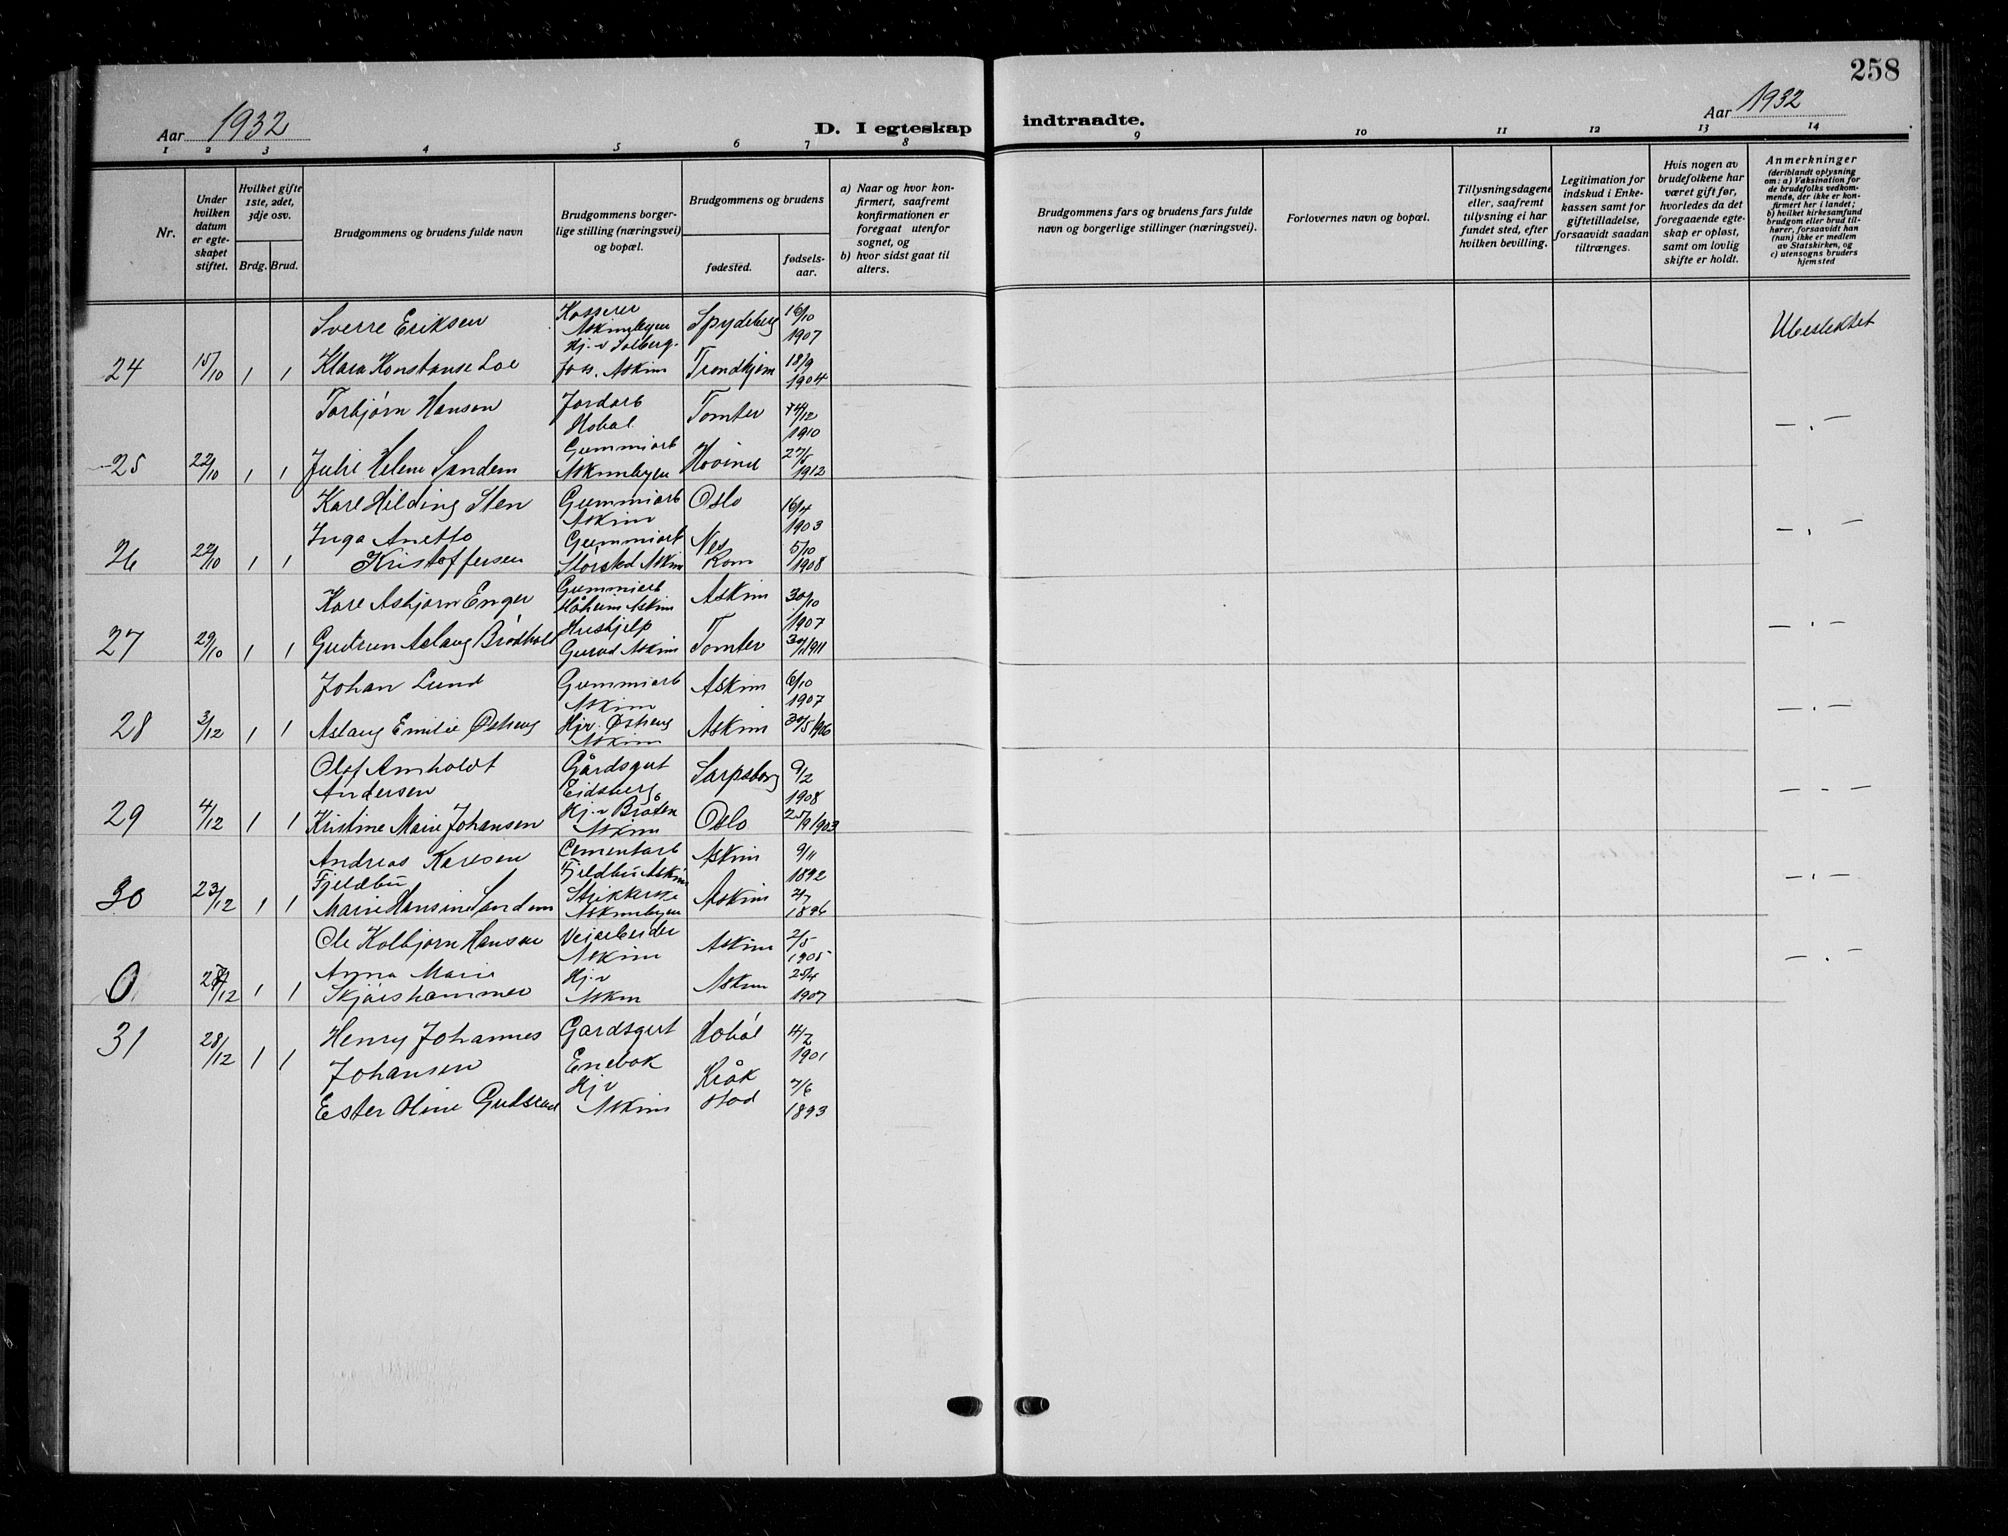 258
Aar 1932
D. I egteskap
indtraadte.
Aar 1932
1 2 3 4 5 6 7 8 9 10 11 12 13 14
Nr.
Under hvilken datum er egteskapet stiftet.
Hvilket gifte 1ste, 2det, 3dje osv.
Brdg. Brud.
Brudgommens og brudens fulde navn
Brudgommens borgerlige stilling (næringsvei) og bopæl.
Brudgommens og brudens
fødested.
fødselsaar.
a) Naar og hvor konfirmert, saafremt konfirmationen er foregaat utenfor sognet, og
b) hvor sidst gaat til alters.
Brudgommens fars og brudens fars fulde navn og borgerlige stillinger (næringsvei).
Forlovernes navn og bopæl.
Tillysningsdagene eller, saafremt tillysning ei har fundet sted, efter hvilken bevilling.
Legitimation for indskud i Enkekassen samt for giftetilladelse, forsaavidt saadan tiltrænges.
Hvis nogen av brudefolkene har været gift før, hvorledes da det foregaaende egteskap er opløst, samt om lovlig skifte er holdt.
Anmerkninger
(deriblandt oplysning om: a) Vaksination for de brudefolks vedkommende, der ikke er konfirmert her i landet;
b) hvilket kirkesamfund brudgom eller brud tilhører, forsaavidt han (hun) ikke er medlem av Statskirken, og
c) utensogns bruders hjemsted
Sverre Eriksen Kasserer Askimbyen Spydeberg 16/10 1907
24 15/10 1 1 Klara Konstanse Loe Hj. v Solbergfoss. Askim Trondhjem 18/9 1904
Torbjørn Hansen Jordarb Hobøl Tomter 1910 — . —
25 22/10 1 1 Julie Helene Sandem Gummiarb Askimbyen 27/5 1912
Kare Hilding Sten Gummiarb Askim Oslo 16/4 1903 — . —
26 22/10 1 1 Inga Anetto Kristoffersen Gummiarb Askim Nes Rom 5/10 1908
Kare Asbjørn Enger Gummiarb Askim Askim 30/10 1907 — . —
27 29/10 1 1 Gudrun Aslaug Hushjelp Askim Tomter 1911
Johan Lund Gummiarb Askim Askim 6/10 1907 — . —
28 3/12 1 1 Aslaug Emilie Østeng Hjv. Østeng Askim Askim 30/5 1906
Olaf Arnholdt Andersen Gårdsgut Eidsberg Sarpsborg 9/2 1908 — . —
29 4/12 1 1 Kristine Marie Johansen Hj. v Bråten Askim Oslo 25/9 1903
Andreas Karlsen Fjeldbu Cementarb Fjeldbu Askim Askim 9/11 1892 — . —
30 23/12 1 1 Marie Hansine Sandem Strikkerske Askimbyen Askim 1896
Ole Kolbjørn Hansen Veiarbeider Askim Askim 2/5 1905 — . —
0 1 1 Anna Marie Skjørshammer Hj. v Askim Askim 25/4 1907
31 28/12 1 1 Henry Johannes Johansen Gardsgut Enebak Hobøl 4/2 1901
Ester Oline Gudsrud Hj v Askim Kråkstad 7/6 1893